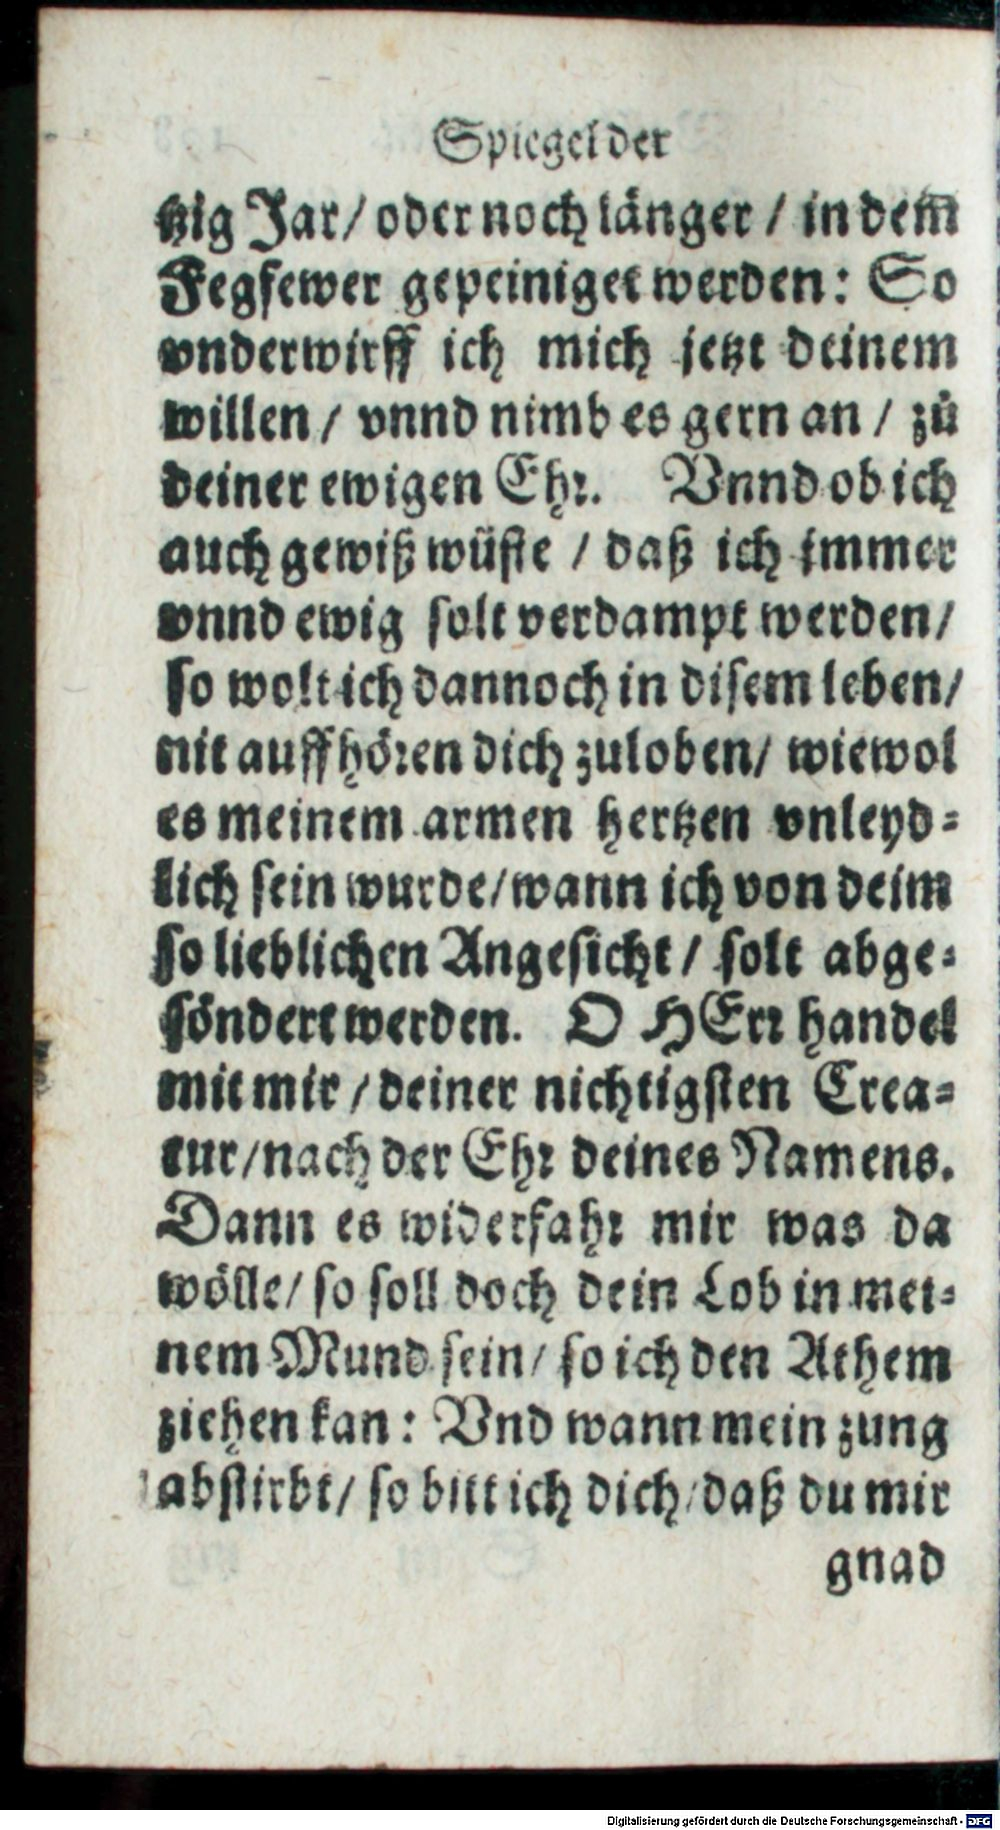 Spiegel der
tzig Jar/ oder noch länger / in dem̃
Fegfewer gepeiniget werden: So
vnderwirff ich mich jetzt deinem
willen / vnnd nimb es gern an / zů
deiner ewigen Ehr. Vnnd ob ich
auch gewiß wüste / daß ich immer
vnnd ewig solt verdampt werden/
so wolt ich dannoch in disem leben/
nit auffhören dich zuloben/ wiewol
es meinem armen hertzen vnleyd-
lich sein wurde/wann ich von deim
so lieblichen Angesicht / solt abge-
söndert werden. O HErr handel
mit mir / deiner nichtigsten Crea-
tur/nach der Ehr deines Namens.
Dann es widerfahr mir was da
wölle/ so soll doch dein Lob in mei-
nem Mund sein/ so ich den Athem
ziehen kan: Vnd wann mein zung
abstirbt/ so bitt ich dich/daß du mir
gnad
Digitalisierung gefördert durch die Deutsche Forschungsgemeinschaft - DFG